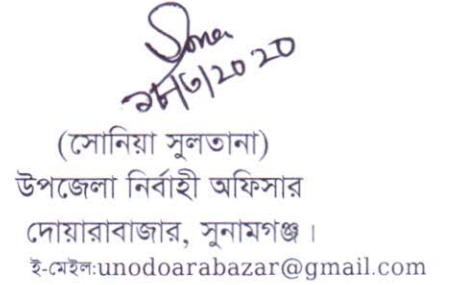 Sona
(সোনিয়া সুলতানা)
উপজেলা নির্বাহী অফিসার
দোয়ারাবাজার, সুনামগঞ্জ।
ই-মেইল:unodoarabazar@gmail.com